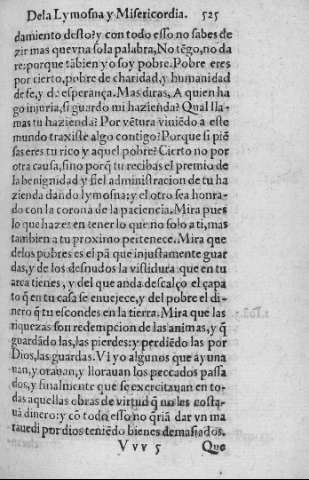 De la Lymosna y Misericordia. 525
damiento desto? y con todo esso no sabes de
zir mas que vna sola palabra, No tẽgo, no da
re: porque tãbien yo soy pobre. Pobre eres
por cierto, pobre de charidad, y humanidad
de fe, y de esperança. Mas diras, A quien ha
go injuria, si guardo mi hazienda? Qual lla-
mas tu hazienda? Por vẽtura viniẽdo a este
mundo traxiste algo contigo? Porque si piẽ
sas eres tu rico y aquel pobre? Cierto no por
otra causa, sino porq̃ tu recibas el premio de
la benignidad y fiel administracion de tu ha
zienda dando lymosna: y el otro sea honra-
do con la corona de la paciencia. Mira pues
lo que hazes en tener lo que no solo a ti, mas
tambien a tu proximo pertenece. Mira que
de los pobres es el pã que injustamente guar
das, y de los desnudos la vistidura que en tu
arca tienes, y del que anda descalço el çapa
to q̃ en tu casa se enuejece, y del pobre el di-
nero q̃ tu escondes en la tierra. Mira que las
riquezas son redempcion de las animas, y q̃
guardãdo las, las pierdes: y perdiẽdo las por
Dios, las guardas. Vi yo algunos que ayuna
uan, y orauan, y llorauan los peccados passa
dos, y finalmente que se exercitauan en to-
das aquellas obras de virtud q̃ no les costa-
uã dinero: y cõ todo esso no q̃riã dar vn ma
rauedi por dios teniẽdo bienes demasiados.
V v v 5 Que